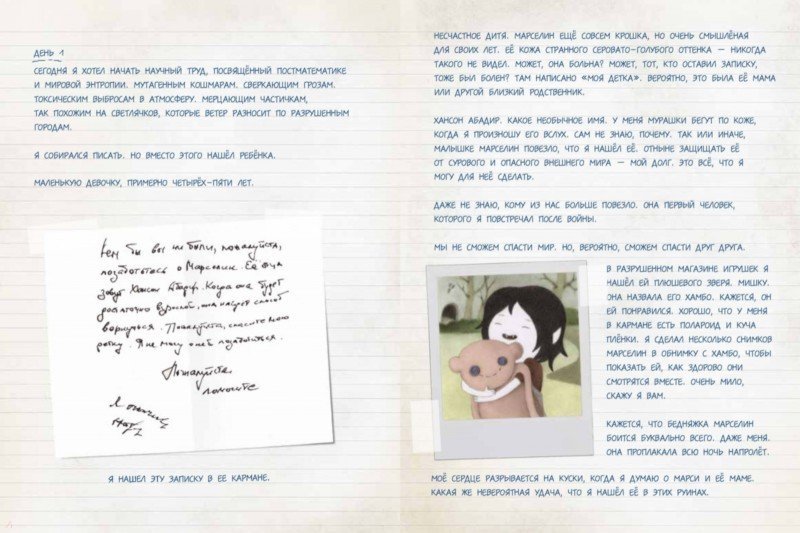 ДЕНЬ 1
СЕГОДНЯ Я ХОТЕЛ НАЧАТЬ НАУЧНЫЙ ТРУД, ПОСВЯЩЁННЫЙ ПОСТМАТЕМАТИКЕ
И МИРОВОЙ ЭНТРОПИИ. МУТАГЕННЫМ КОШМАРАМ. СВЕРКАЮЩИМ ГРОЗАМ.
ТОКСИЧЕСКИМ ВЫБРОСАМ В АТМОСФЕРУ. МЕРЦАЮЩИМ ЧАСТИЧКАМ,
ТАК ПОХОЖИМ НА СВЕТЛЯЧКОВ, КОТОРЫЕ ВЕТЕР РАЗНОСИТ ПО РАЗРУШЕННЫМ
ГОРОДАМ.
Я СОБИРАЛСЯ ПИСАТЬ. НО ВМЕСТО ЭТОГО НАШЁЛ РЕБЁНКА.
МАЛЕНЬКУЮ ДЕВОЧКУ, ПРИМЕРНО ЧЕТЫРЁХ-ПЯТИ ЛЕТ.
Кем бы вы ни были, пожалуйста,
позаботьтесь о Марселин. Её отца
зовут Хансон Абадир. Когда она будет
достаточно взрослой, она найдёт способ
вернуться. Пожалуйста, спасите мою
детку. Я не могу о ней позаботиться.
Пожалуйста
помогите
Я
Я НАШЕЛ ЭТУ ЗАПИСКУ В ЕЕ КАРМАНЕ.
НЕСЧАСТНОЕ ДИТЯ. МАРСЕЛИН ЕЩЁ СОВСЕМ КРОШКА, НО ОЧЕНЬ СМЫШЛЁНАЯ
ДЛЯ СВОИХ ЛЕТ. ЕЁ КОЖА СТРАННОГО СЕРОВАТО-ГОЛУБОГО ОТТЕНКА — НИКОГДА
ТАКОГО НЕ ВИДЕЛ. МОЖЕТ, ОНА БОЛЬНА? МОЖЕТ, ТОТ, КТО ОСТАВИЛ ЗАПИСКУ,
ТОЖЕ БЫЛ БОЛЕН? ТАМ НАПИСАНО «МОЯ ДЕТКА». ВЕРОЯТНО, ЭТО БЫЛА ЕЁ МАМА
ИЛИ ДРУГОЙ БЛИЗКИЙ РОДСТВЕННИК.
ХАНСОН АБАДИР. КАКОЕ НЕОБЫЧНОЕ ИМЯ. У МЕНЯ МУРАШКИ БЕГУТ ПО КОЖЕ,
КОГДА Я ПРОИЗНОШУ ЕГО ВСЛУХ. САМ НЕ ЗНАЮ, ПОЧЕМУ. ТАК ИЛИ ИНАЧЕ,
МАЛЫШКЕ МАРСЕЛИН ПОВЕЗЛО, ЧТО Я НАШЁЛ ЕЁ. ОТНЫНЕ ЗАЩИЩАТЬ ЕЁ
ОТ СУРОВОГО И ОПАСНОГО ВНЕШНЕГО МИРА — МОЙ ДОЛГ. ЭТО ВСЁ, ЧТО Я
МОГУ ДЛЯ НЕЁ СДЕЛАТЬ.
ДАЖЕ НЕ ЗНАЮ, КОМУ ИЗ НАС БОЛЬШЕ ПОВЕЗЛО. ОНА ПЕРВЫЙ ЧЕЛОВЕК,
КОТОРОГО Я ПОВСТРЕЧАЛ ПОСЛЕ ВОЙНЫ.
МЫ НЕ СМОЖЕМ СПАСТИ МИР. НО, ВЕРОЯТНО, СМОЖЕМ СПАСТИ ДРУГ ДРУГА.
В РАЗРУШЕННОМ МАГАЗИНЕ ИГРУШЕК Я
НАШЁЛ ЕЙ ПЛЮШЕВОГО ЗВЕРЯ. МИШКУ.
ОНА НАЗВАЛА ЕГО ХАМБО. КАЖЕТСЯ, ОН
ЕЙ ПОНРАВИЛСЯ. ХОРОШО, ЧТО У МЕНЯ
В КАРМАНЕ ЕСТЬ ПОЛАРОИД И КУЧА
ПЛЁНКИ. Я СДЕЛАЛ НЕСКОЛЬКО СНИМКОВ
МАРСЕЛИН В ОБНИМКУ С ХАМБО, ЧТОБЫ
ПОКАЗАТЬ ЕЙ, КАК ЗДОРОВО ОНИ
СМОТРЯТСЯ ВМЕСТЕ. ОЧЕНЬ МИЛО,
СКАЖУ Я ВАМ.
КАЖЕТСЯ, ЧТО БЕДНЯЖКА МАРСЕЛИН
БОИТСЯ БУКВАЛЬНО ВСЕГО. ДАЖЕ МЕНЯ.
ОНА ПРОПЛАКАЛА ВСЮ НОЧЬ НАПРОЛЁТ.
МОЁ СЕРДЦЕ РАЗРЫВАЕТСЯ НА КУСКИ, КОГДА Я ДУМАЮ О МАРСИ И ЕЁ МАМЕ.
КАКАЯ ЖЕ НЕВЕРОЯТНАЯ УДАЧА, ЧТО Я НАШЁЛ ЕЁ В ЭТИХ РУИНАХ.